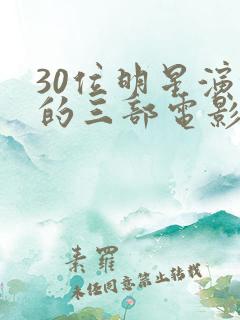 30位明星演
的三部电影
素罗
未经同意禁止转载